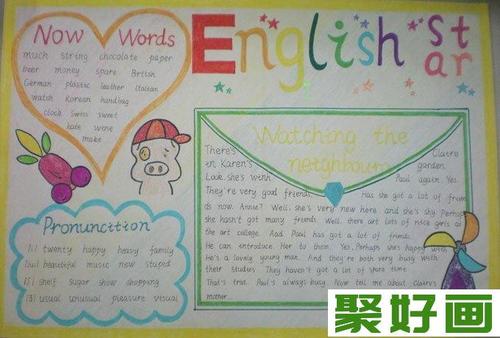 Now Words
much string chocolate paper
beer money spare British
German plastic leather Italian
watch Korean handbag
clock Swiss sweet
hate wine
make
English star
Watching the
neighbours
There's Claire
in Karen's garden.
Look, she's with Paul again. Yes.
They're very good friends. Has she got a lot of frien
ds now, Annie? Well, she's very new here and she's shy. Perhaps
she hasn't got many friends. Well, there are lots of nice girls at
the art college. And Paul has got a lot of friends.
He can introduce her to them. Yes. Perhaps she's happy with
he's a lovely young man. And they're both very busy with
their studies. They haven't got a lot of spare time.
That's true. Paul's always busy. Now tell me about Claire's
mother.
Pronunction
[i] twenty happy heavy family
[ju:] beautiful music new stupid
[ʃ] shelf sugar show shopping
[ʒ] usual unusual pleasure visual
聚好画